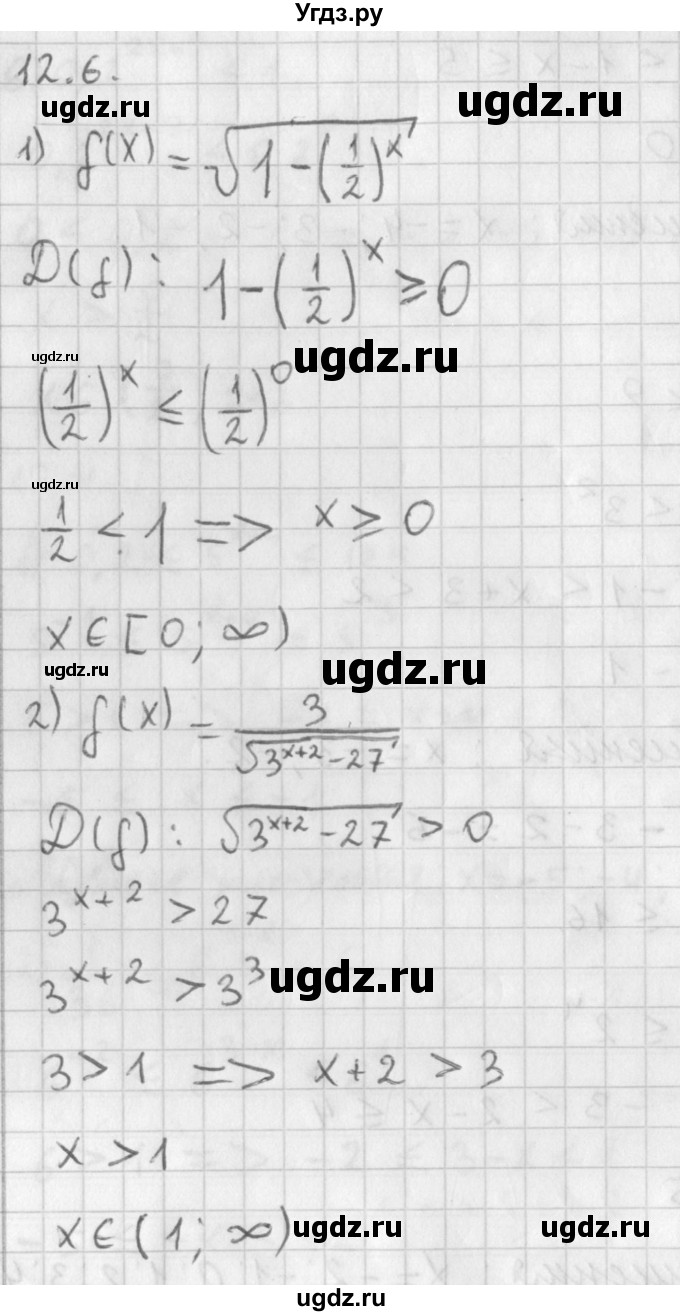 Угдз.ру
12.6.
ugdz.ru ugdz.ru
1) f(x) = √(1 - (1/2)^x)
D(f): 1 - (1/2)^x ≥ 0
ugdz.ru ugdz.ru
(1/2)^x ≤ (1/2)^0
ugdz.ru
1/2 < 1 => x ≥ 0
x ∈ [0; ∞)
ugdz.ru ugdz.ru
2) f(x) = 3/√(3^(x+2) - 27)
D(f): √(3^(x+2) - 27) > 0
3^(x+2) > 27
3^(x+2) > 3^3
ugdz.ru
3 > 1 => x + 2 > 3
x > 1
x ∈ (1; ∞)
ugdz.ru ugdz.ru
ugdz.ru